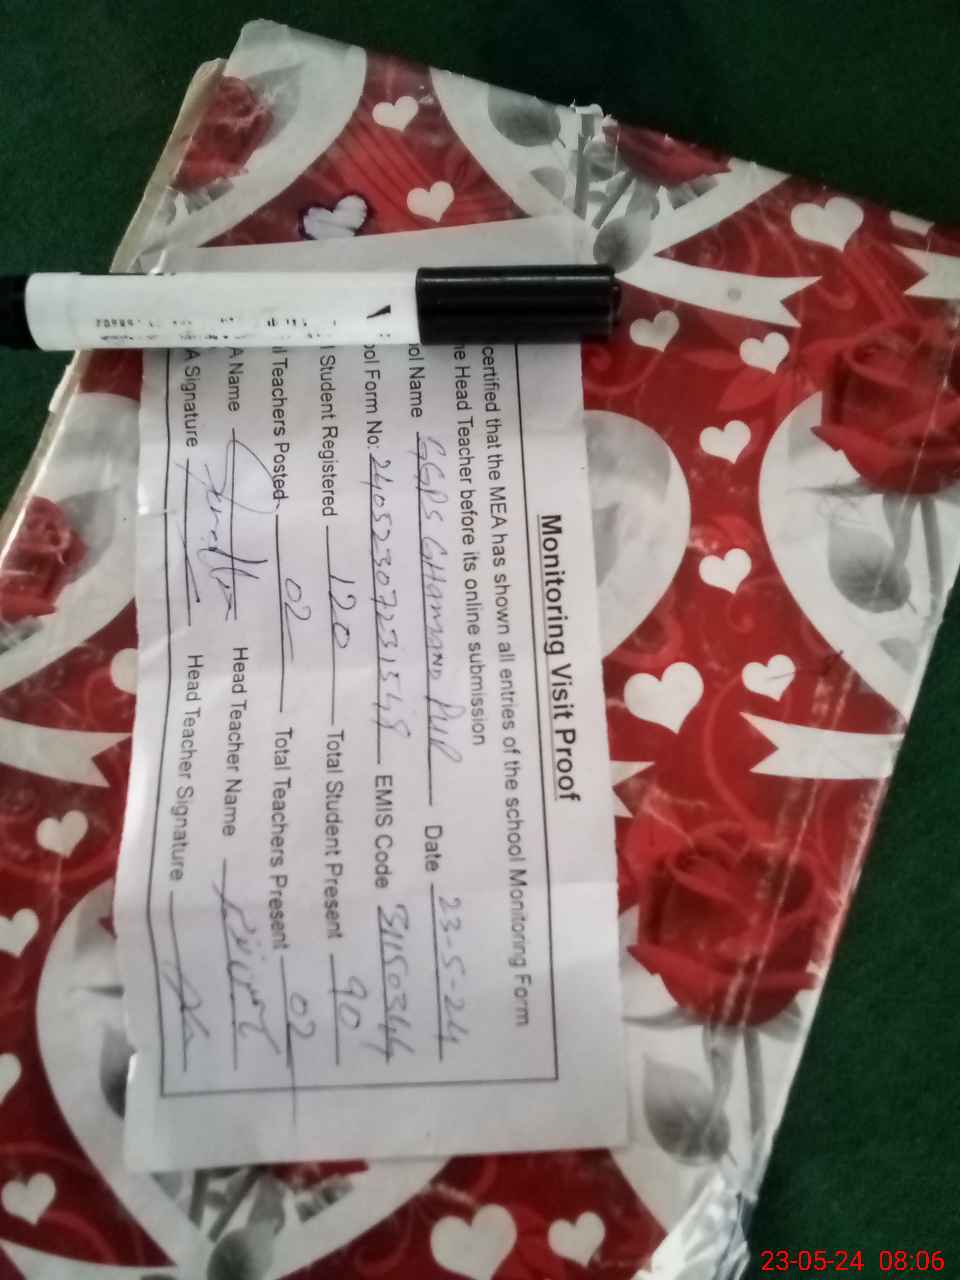 Monitoring Visit Proof
certified that the MEA has shown all entries of the school Monitoring Form
Head Teacher before its online submission
Name GGPS GHAMAND PUR Date 23-5-24
Form No: EMIS Code 31150344
Student Registered 120 Total Student Present 90
Teachers Posted 02 Total Teachers Present 02
A Name Head Teacher Name
A Signature Head Teacher Signature
23-05-24 08:06